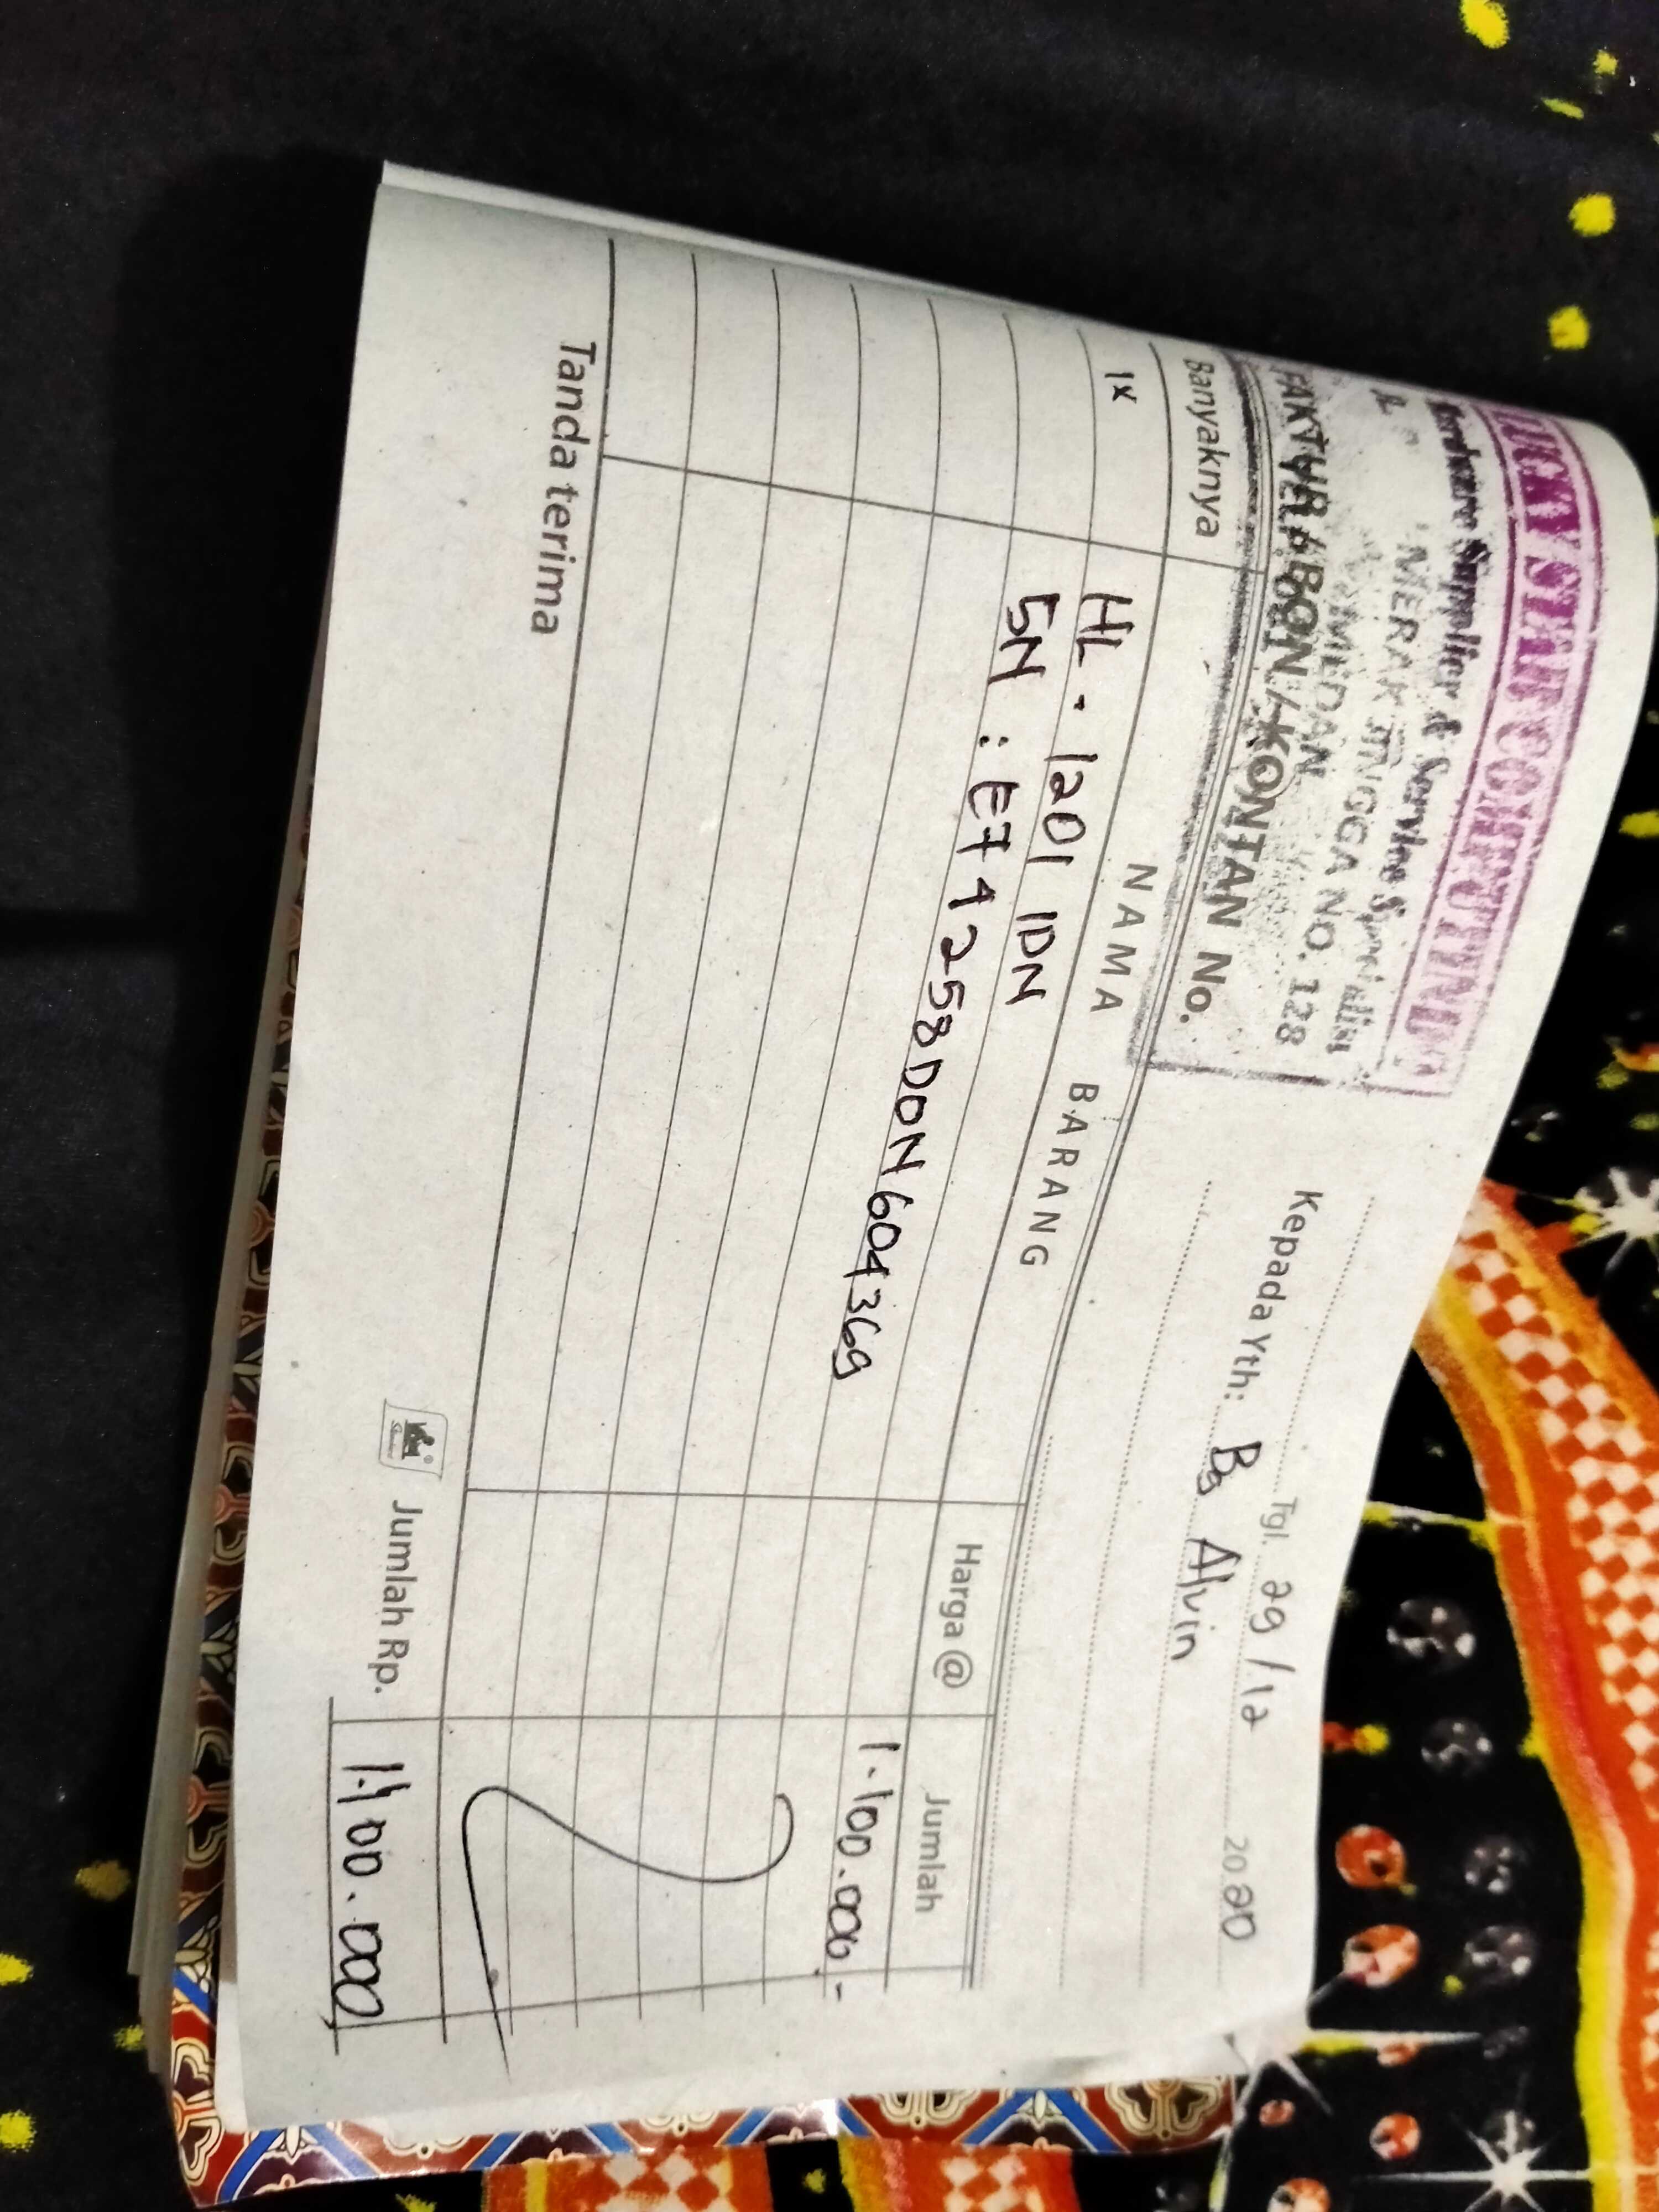 LUCKY STAR COMPUTINDO
Hardware Supplier & Service Specialist
JL. MERAK JINGGA NO. 128
MEDAN
FAKTUR / BON / KONTAN No.
Tgl. 29 / 12 2020
Kepada Yth: Bg Alvin
Banyaknya NAMA BARANG Harga @ Jumlah
1x HL - 1201 IDN 1.100.000.-
SN : E74258D0N604369
Tanda terima Jumlah Rp. 1.100.000